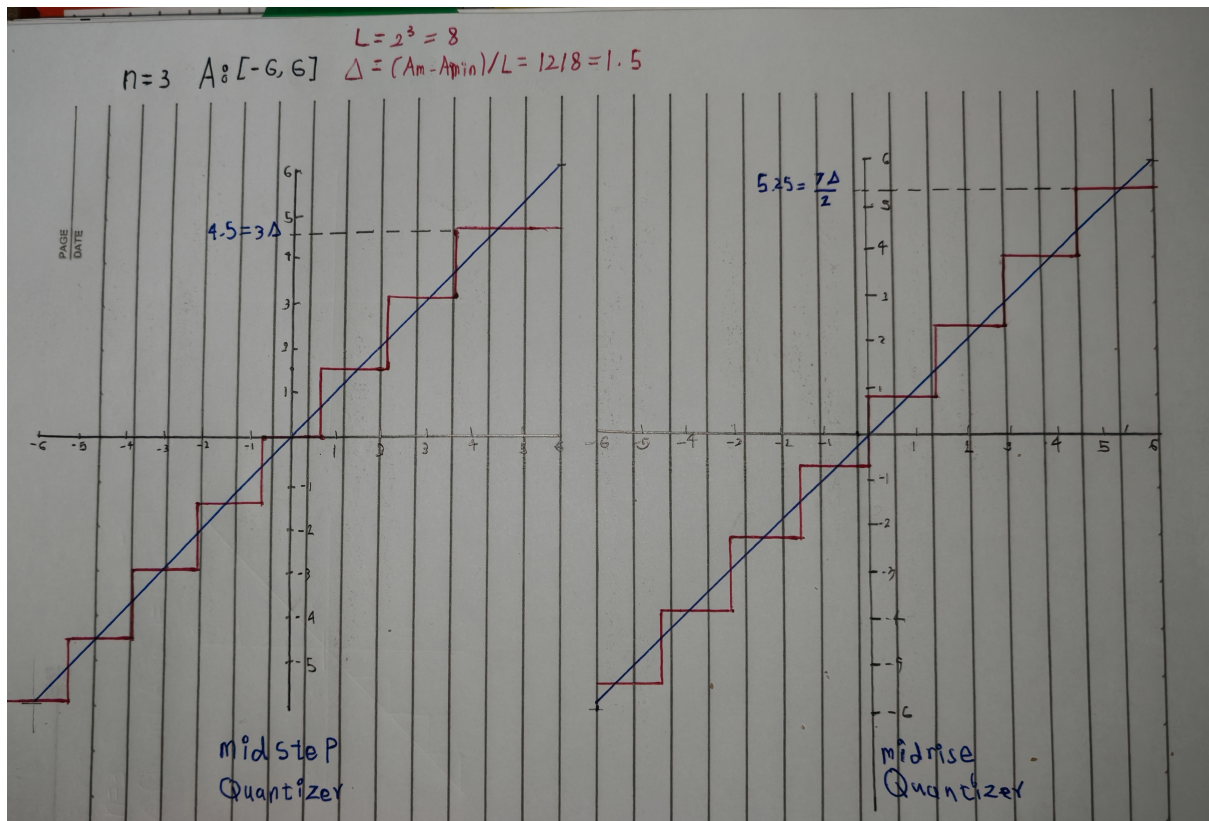 L = 2³ = 8
n=3 A: [-6, 6] Δ = (Am-Amin)/L = 12/8 = 1.5
PAGE
DATE
4.5=3Δ
6
5
4
3
2
1
-6 -5 -4 -3 -2 -1 1 2 3 4 5 6
-1
-2
-3
-4
-5
midsteP
Quantizer
5.25= 7Δ/2
6
5
4
3
2
1
-6 -5 -4 -3 -2 -1 1 2 3 4 5 6
-1
-2
-3
-4
-5
-6
midrise
Quantizer